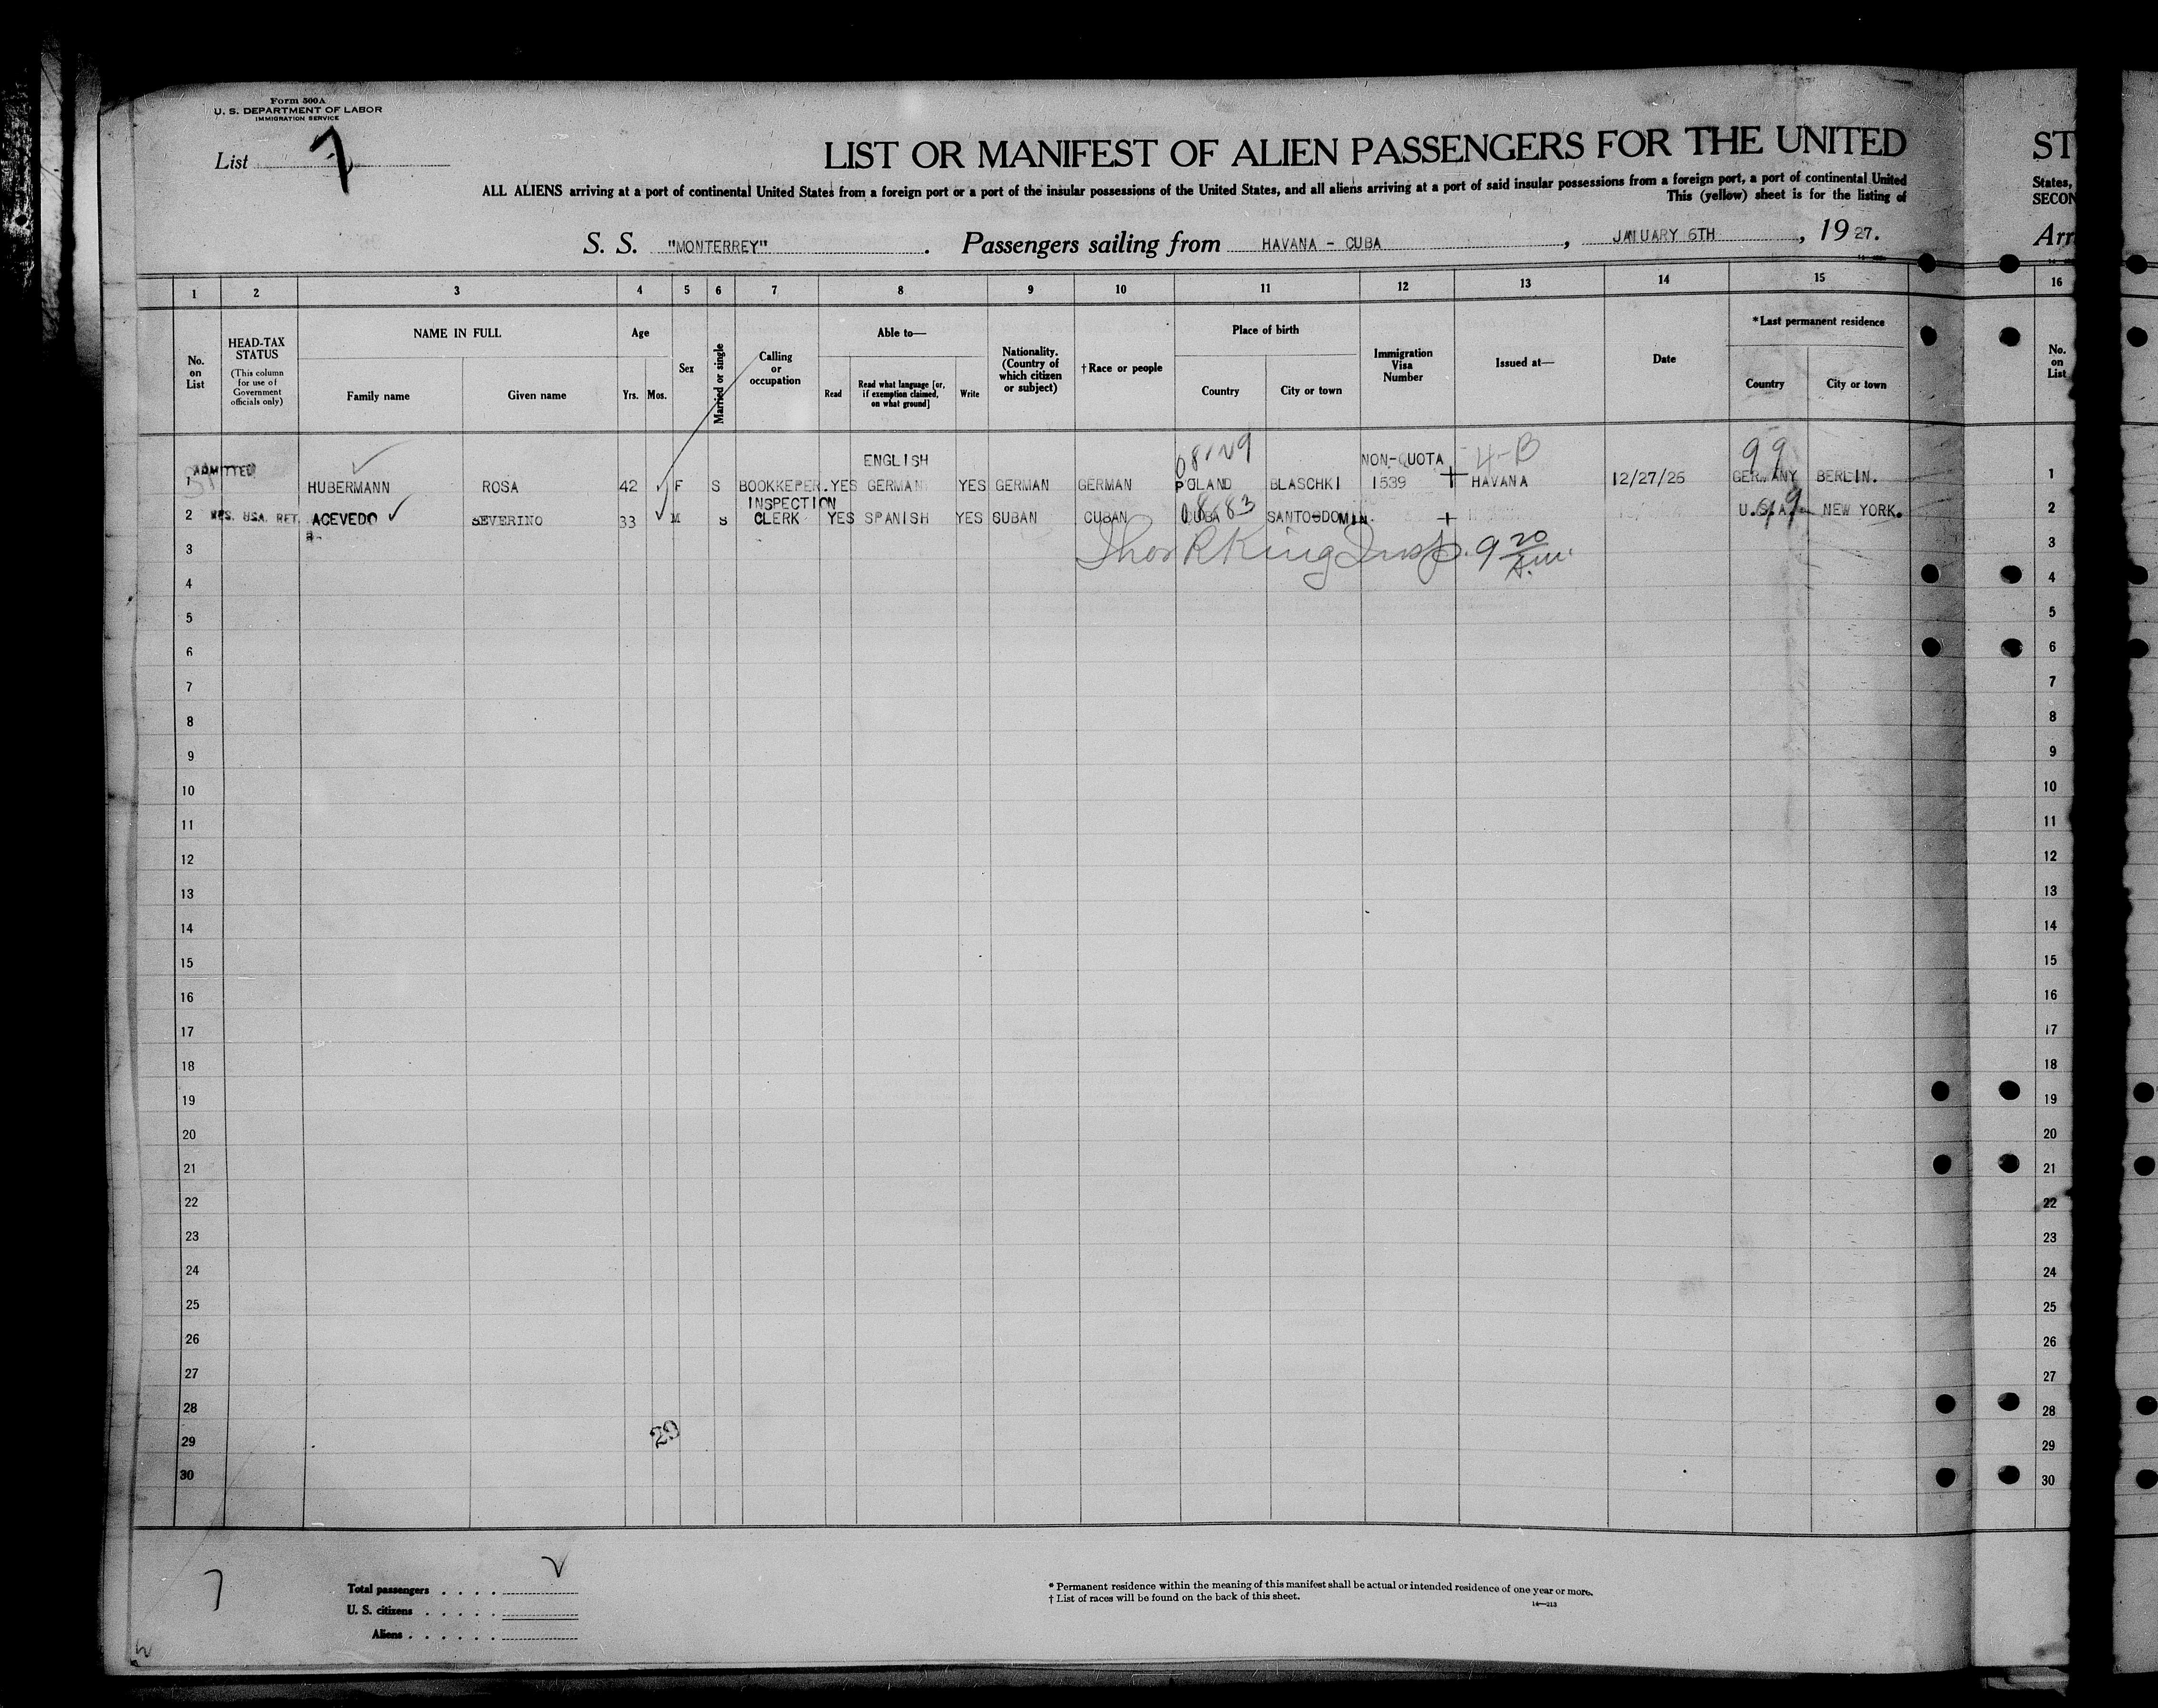 Form 500A
U. S. DEPARTMENT OF LABOR
IMMIGRATION SERVICE
List 7
LIST OR MANIFEST OF ALIEN PASSENGERS FOR THE UNITED
ST
ALL ALIENS arriving at a port of continental United States from a foreign port or a port of the insular possessions of the United States, and all aliens arriving at a port of said insular possessions from a foreign port, a port of continental United
States,
This (yellow) sheet is for the listing of
SECON
S. S. "MONTERREY". Passengers sailing from HAVANA - CUBA, JANUARY 6TH, 1927.
Arr
1 2 3 4 5 6 7 8 9 10 11 12 13 14 15 16
No. on List
HEAD-TAX STATUS
(This column for use of Government officials only)
NAME IN FULL
Family name Given name
Age
Yrs. Mos.
Sex
Married or single
Calling or occupation
Able to—
Read Read what language [or, if exemption claimed, on what ground] Write
Nationality. (Country of which citizen or subject)
† Race or people
Place of birth
Country City or town
Immigration Visa Number
Issued at—
Date
*Last permanent residence
Country City or town
No. on List
ENGLISH NON-QUOTA 4-B 99
1 ADMITTED HUBERMANN ROSA 42 F S BOOKKEPER. YES GERMAN YES GERMAN GERMAN POLAND BLASCHKI 1539 HAVANA 12/27/26 GERMANY BERLIN. 1
INSPECTION
2 RES. USA. RET. ACEVEDO SEVERINO 33 M S CLERK YES SPANISH YES CUBAN CUBAN CUBA SANTO-DOMIN. U.S.A. NEW YORK. 2
3 Thos R King Insp. 9 20 A.m. 3
4 4
5 5
6 6
7 7
8 8
9 9
10 10
11 11
12 12
13 13
14 14
15 15
16 16
17 17
18 18
19 19
20 20
21 21
22 22
23 23
24 24
25 25
26 26
27 27
28 28
29 29 29
30 30
7
Total passengers . . . .
U. S. citizens . . . . .
Aliens . . . . . .
* Permanent residence within the meaning of this manifest shall be actual or intended residence of one year or more.
† List of races will be found on the back of this sheet.
14—213